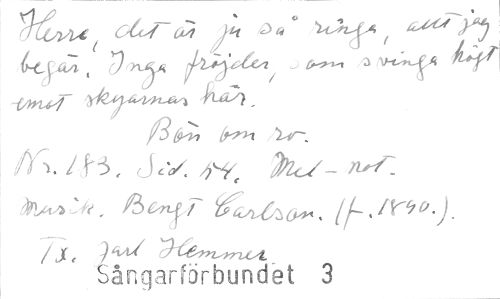 Herre, det är ju så ringa, allt jag
begär. Inga fröjder, som svinga högt
emot skyarnas här.
Bön om ro.
Nr. 183. Sid. 54. Mel-not.
Musik. Bengt Carlson. (f. 1890.).
Tx. Jarl Hemmer
Sångarförbundet 3